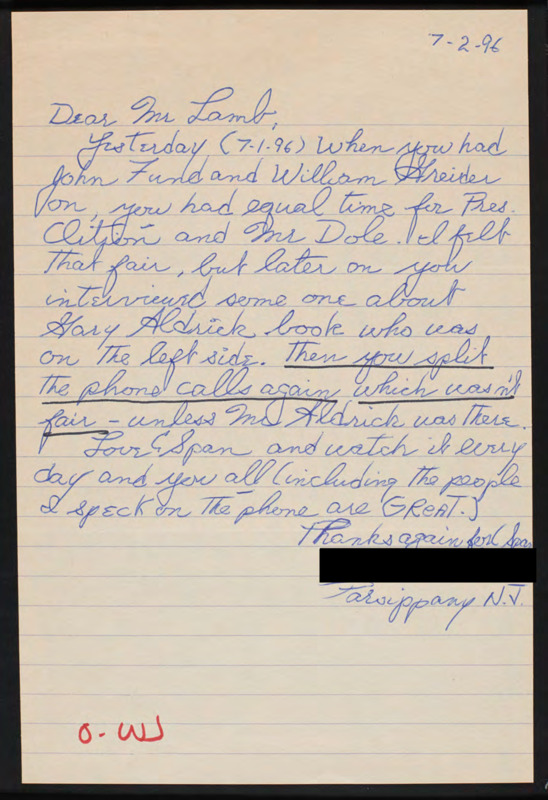 7-2-96
Dear Mr Lamb,
Yesterday (7-1-96) When you had
John Fund and William Greider
on, you had equal time for Pres.
Clitpon and Mr Dole. I felt
that fair, but later on you
interviewed some one about
Gary Aldrick book who was
on the left side. Then you split
the phone calls again which wasn't
fair - unless Mr Aldrick was there.
Love C Span and watch it every
day and you all (including the people
I speck on the phone are GREAT.)
Thanks again for C Span
Parsippany N.J.
O-WJ